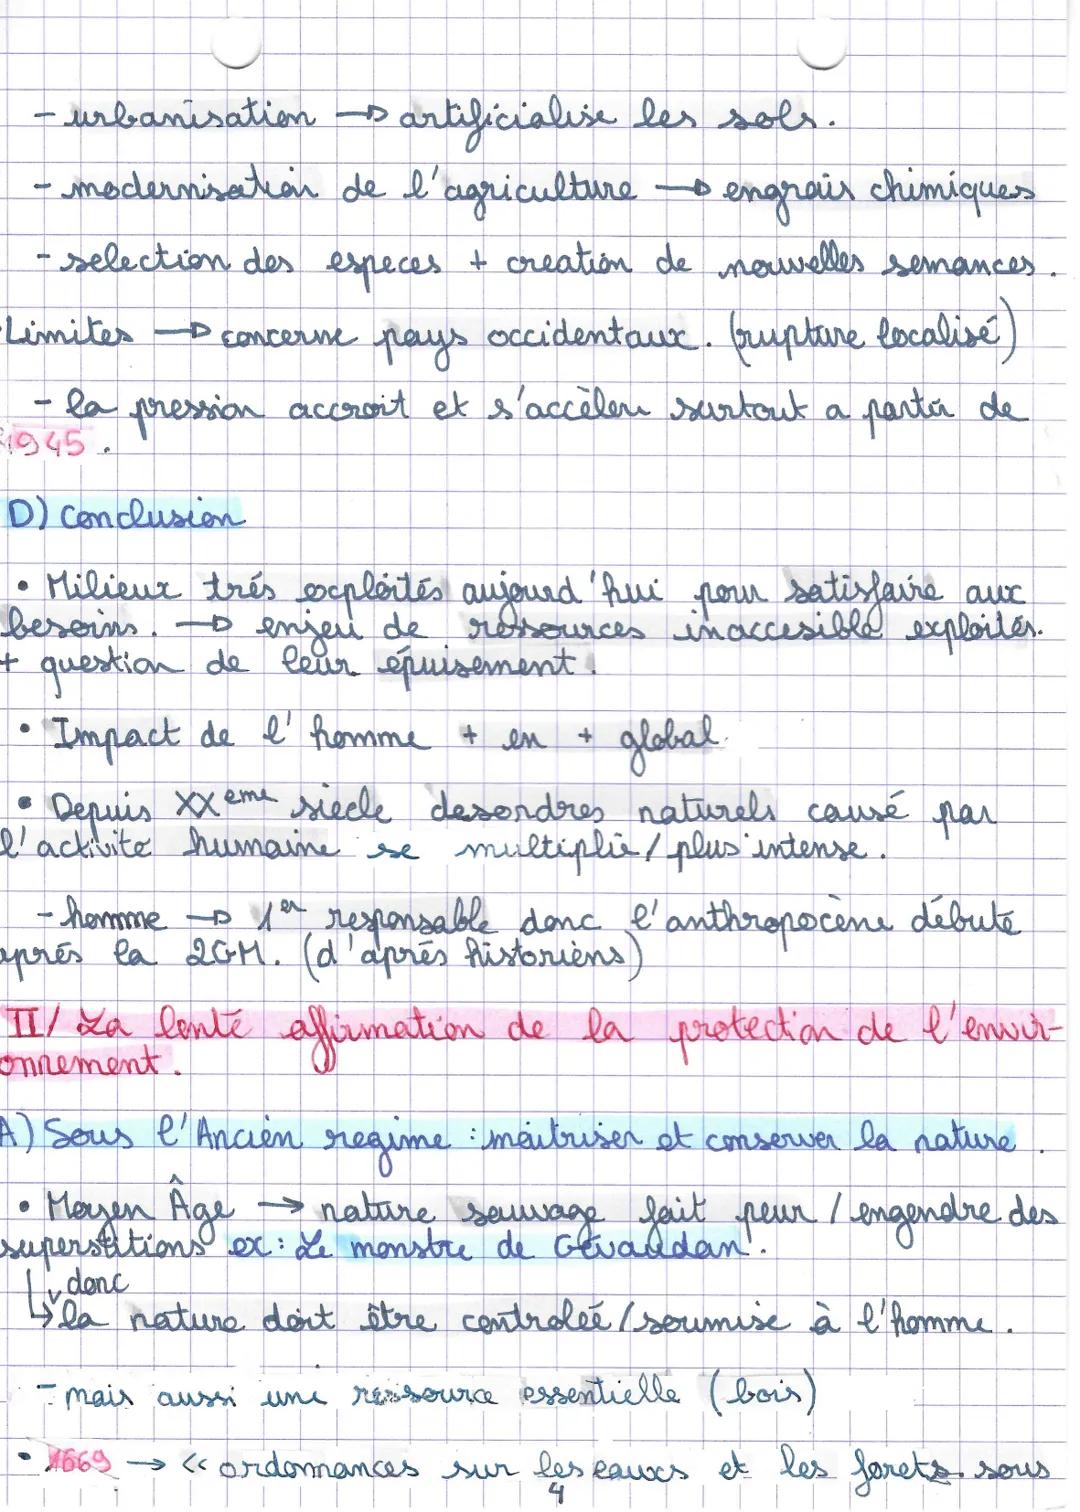 - urbanisation → artificialise les sols.
- modernisation de l'agriculture → engrais chimiques
- selection des especes + creation de nouvelles semances.
Limites → concerne pays occidentaux. (rupture localisé)
- la pression accroit et s'accèlere surtout a partir de
1945.
D) Conclusion
• Milieux trés exploités aujourd'hui pour satisfaire aux
besoins. → enjeu de ressources inaccesible exploités.
+ question de leur épuisement.
• Impact de l'homme + en + global
• Depuis XXeme siecle desordres naturels causé par
l'activite humaine se multiplie / plus intense.
- homme → 1er responsable donc l'anthropocène débute
aprés la 2GM. (d'aprés historiens)
II/ La lente affirmation de la protection de l'envir-
onnement.
A) Sous l'Ancien regime : maîtriser et conserver la nature.
• Moyen Âge → nature sauvage fait peur / engendre des
superstitions ex : Le monstre de Gévaudan.
donc
↳ la nature doit être controleé / soumise à l'homme.
- mais aussi une ressource essentielle (bois)
• 1669 → << ordonnances sur les eaux et les forets sous
4